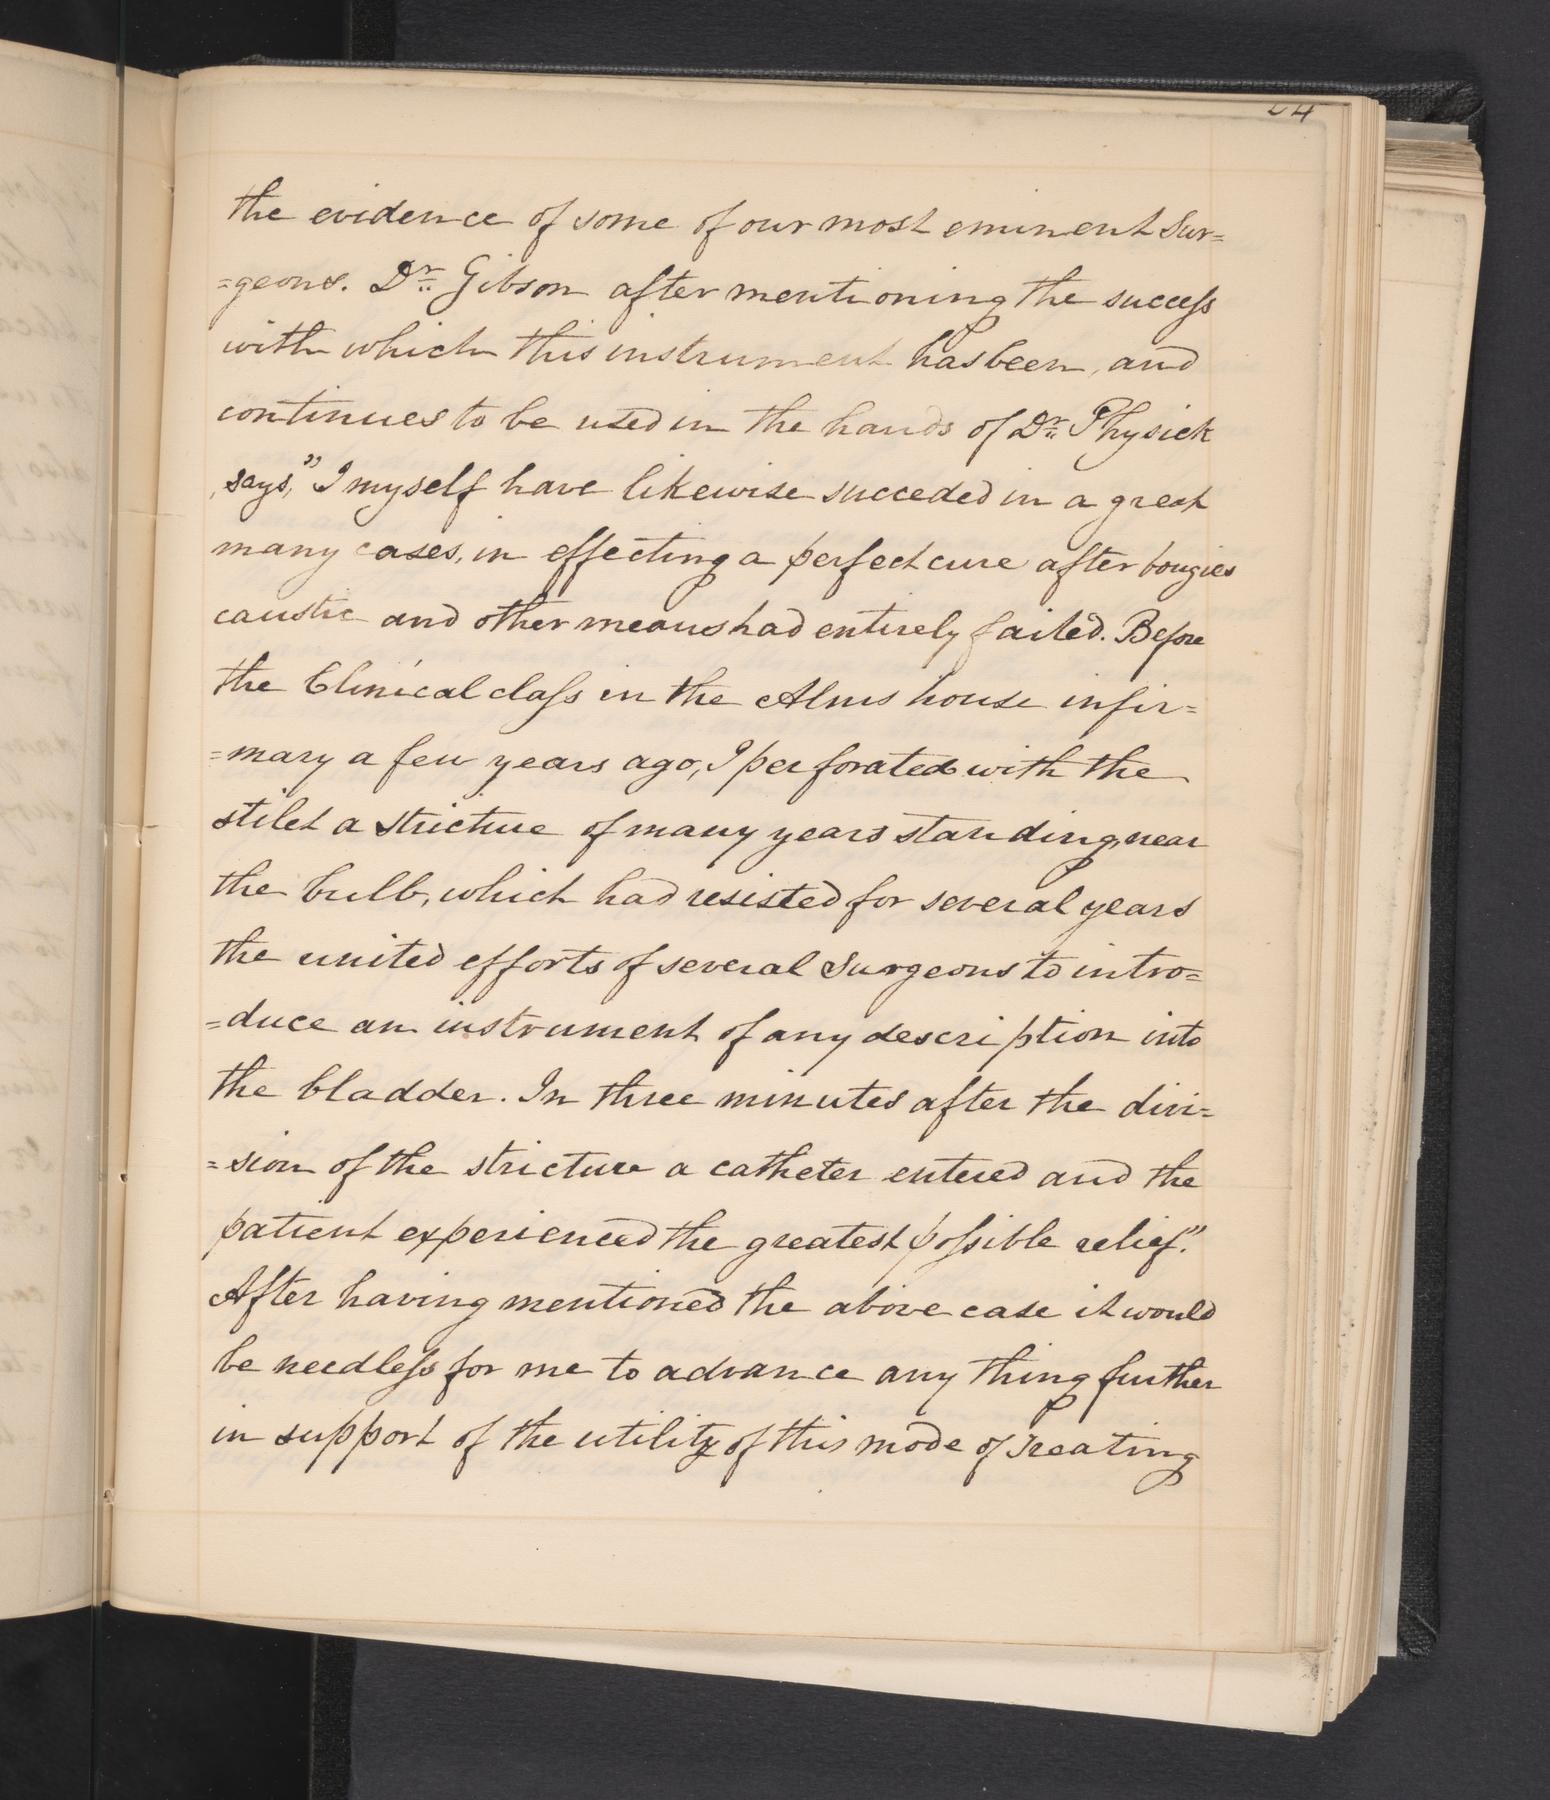 24
the evidence of some of our most eminent Sur=
=geons. Dr. Gibson after mentioning the succeſs
with which this instrument has been, and
continues to be used in the hands of Dr. Physick
says, " I myself have likewise succeded in a great
many cases, in effecting a perfect cure after bougies
caustic and other means had entirely failed. Before
the Clinical claſs in the Alms house infir=
=mary a few years ago, I perforated with the
stilet a stricture of many years standing, near
the bulb, which had resisted for several years
the united efforts of several Surgeons to intro=
=duce an instrument of any description into
the bladder. In three minutes after the divi=
=sion of the stricture a catheter entered and the
patient experienced the greatest poſsible relief."
After having mentioned the above case it would
be needleſs for me to advance any thing further
in support of the utility of this mode of treating